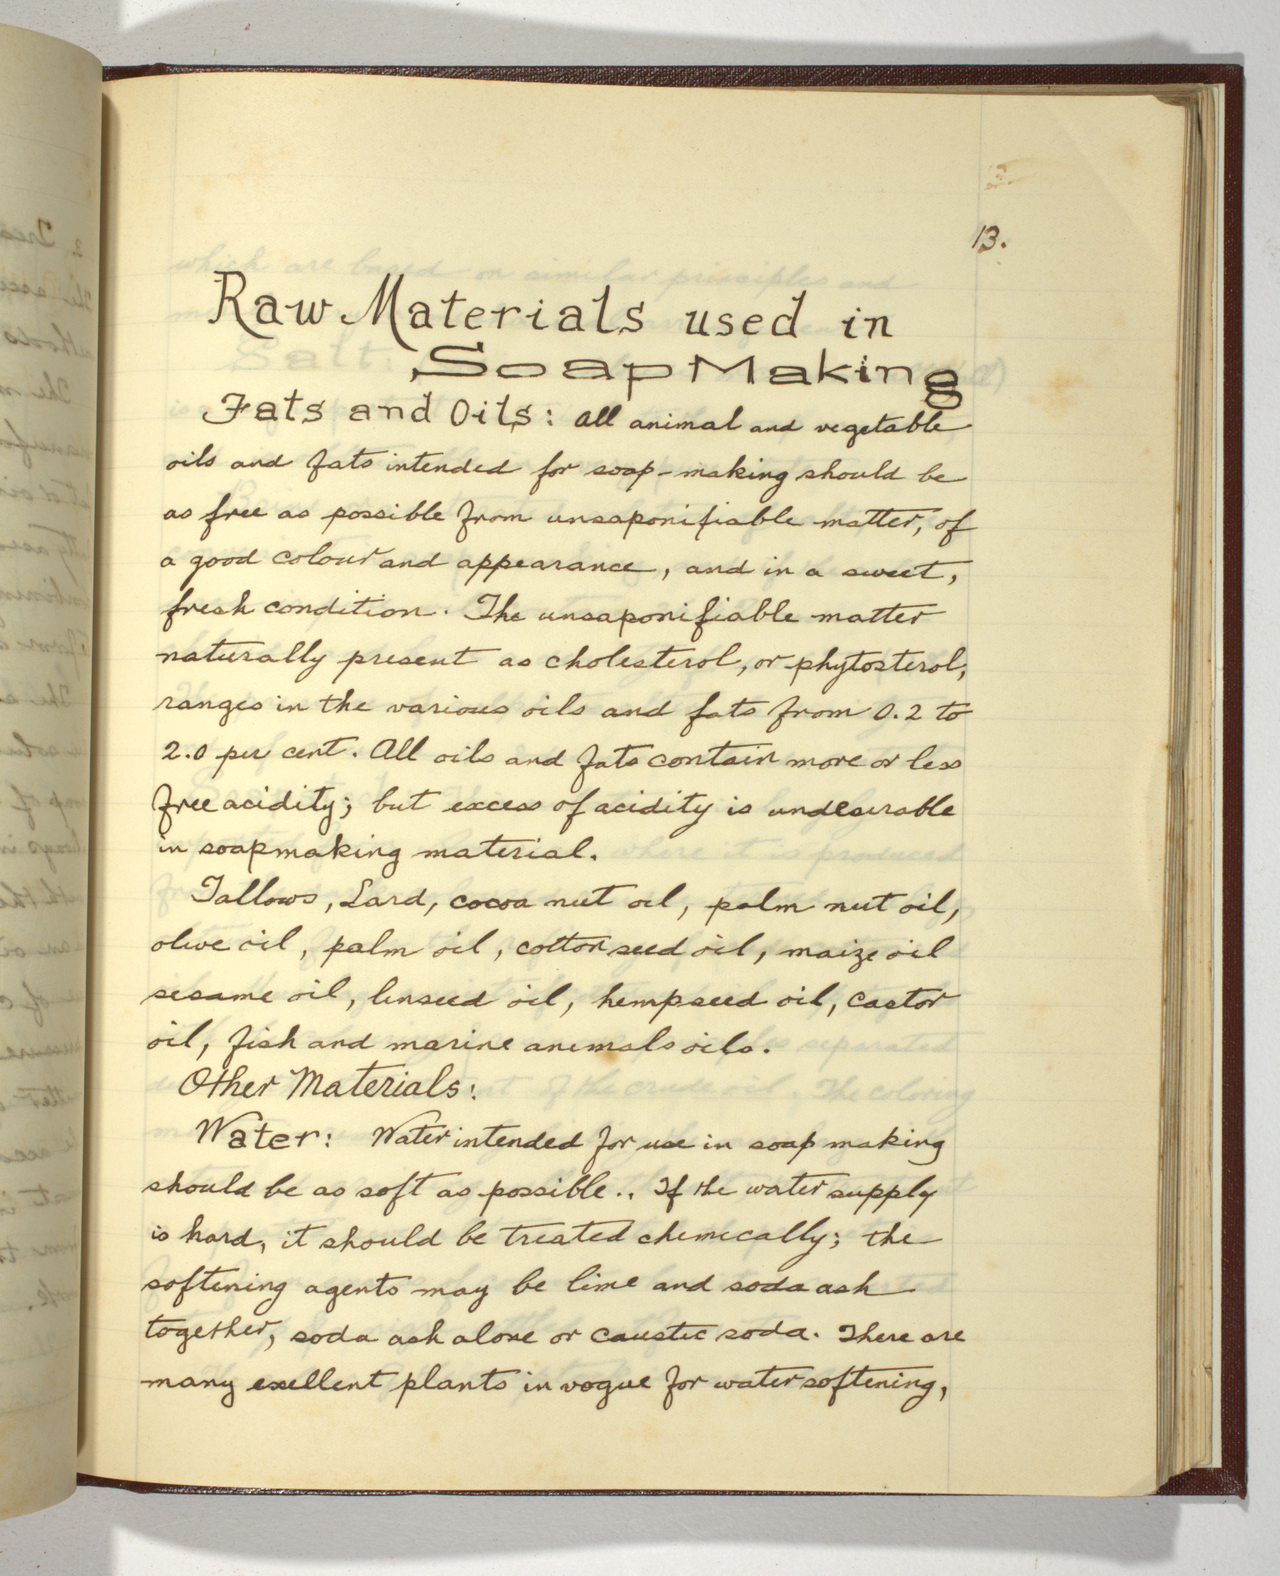 13.
Raw Materials used in
Soap Making
Fats and Oils: All animal and vegetable
oils and fats intended for soap-making should be
as free as possible from unsaponifiable matter, of
a good colour and appearance, and in a sweet,
fresh condition. The unsaponifiable matter
naturally present as cholesterol, or phytosterol,
ranges in the various oils and fats from 0.2 to
2.0 per cent. All oils and fats contain more or less
free acidity; but excess of acidity is undesirable
in soapmaking material.
Tallows, Lard, cocoa nut oil, palm nut oil,
olive oil, palm oil, cotton seed oil, maize oil
sesame oil, linseed oil, hempseed oil, castor
oil, fish and marine animals oils.
Other Materials:
Water: Water intended for use in soap making
should be as soft as possible.. If the water supply
is hard, it should be treated chemically; the
softening agents may be lime and soda ash
together, soda ash alone or caustic soda. There are
many exellent plants in vogue for water softening,